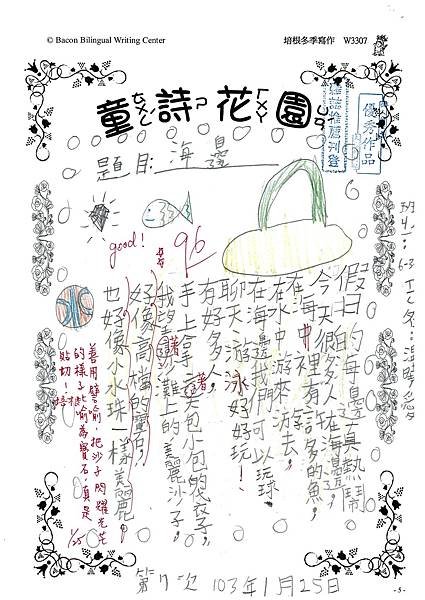 © Bacon Bilingual Writing Center
培根冬季寫作 W3307
童詩花園
雜誌推薦刊登
優秀作品
題目:海邊
good!
96
假日的海邊真熱鬧
今天很多人在海邊。
在海中裡有許多的魚,
在水中游來游去。
在海邊我們可以玩球、
聊天、游泳好好玩!
有好多人,
手上拿著大包小包的袋子,
我望著沙灘上的美麗沙子,
好像高檔的寶石
也好像小水珠一樣美麗。
善用譬喻,把沙子閃耀光芒
的樣子比喻為寶石,真是
貼切!
1/25
第7次 103年1月25日
- 5 -